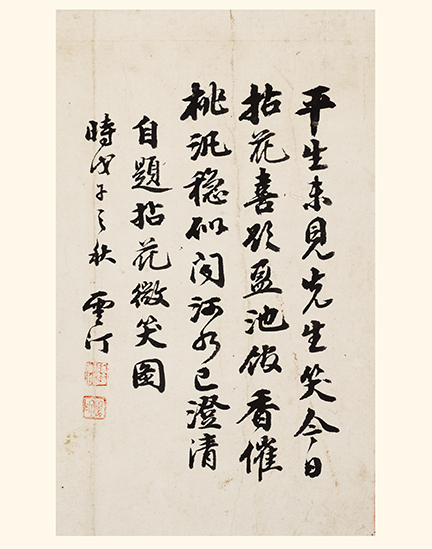 平生未見先生笑今日
拈花喜欲盈池飯香催
桃汎穩似聞河水已澄清
自題拈花微笑圖
時戊子之秋 雲汀